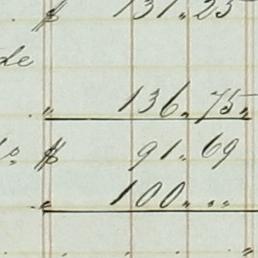 $ 131 " 25
de
" 136 " 75 "
$ 91 " 69
" 100 " "